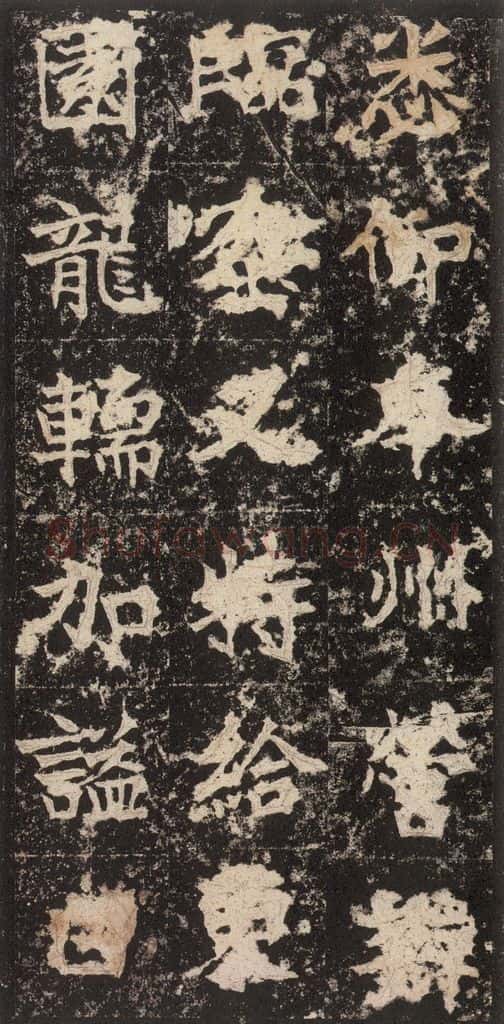 悉仰本州營辦
臨窆又特給東
園龍轜加謚曰
Shufawang.CN